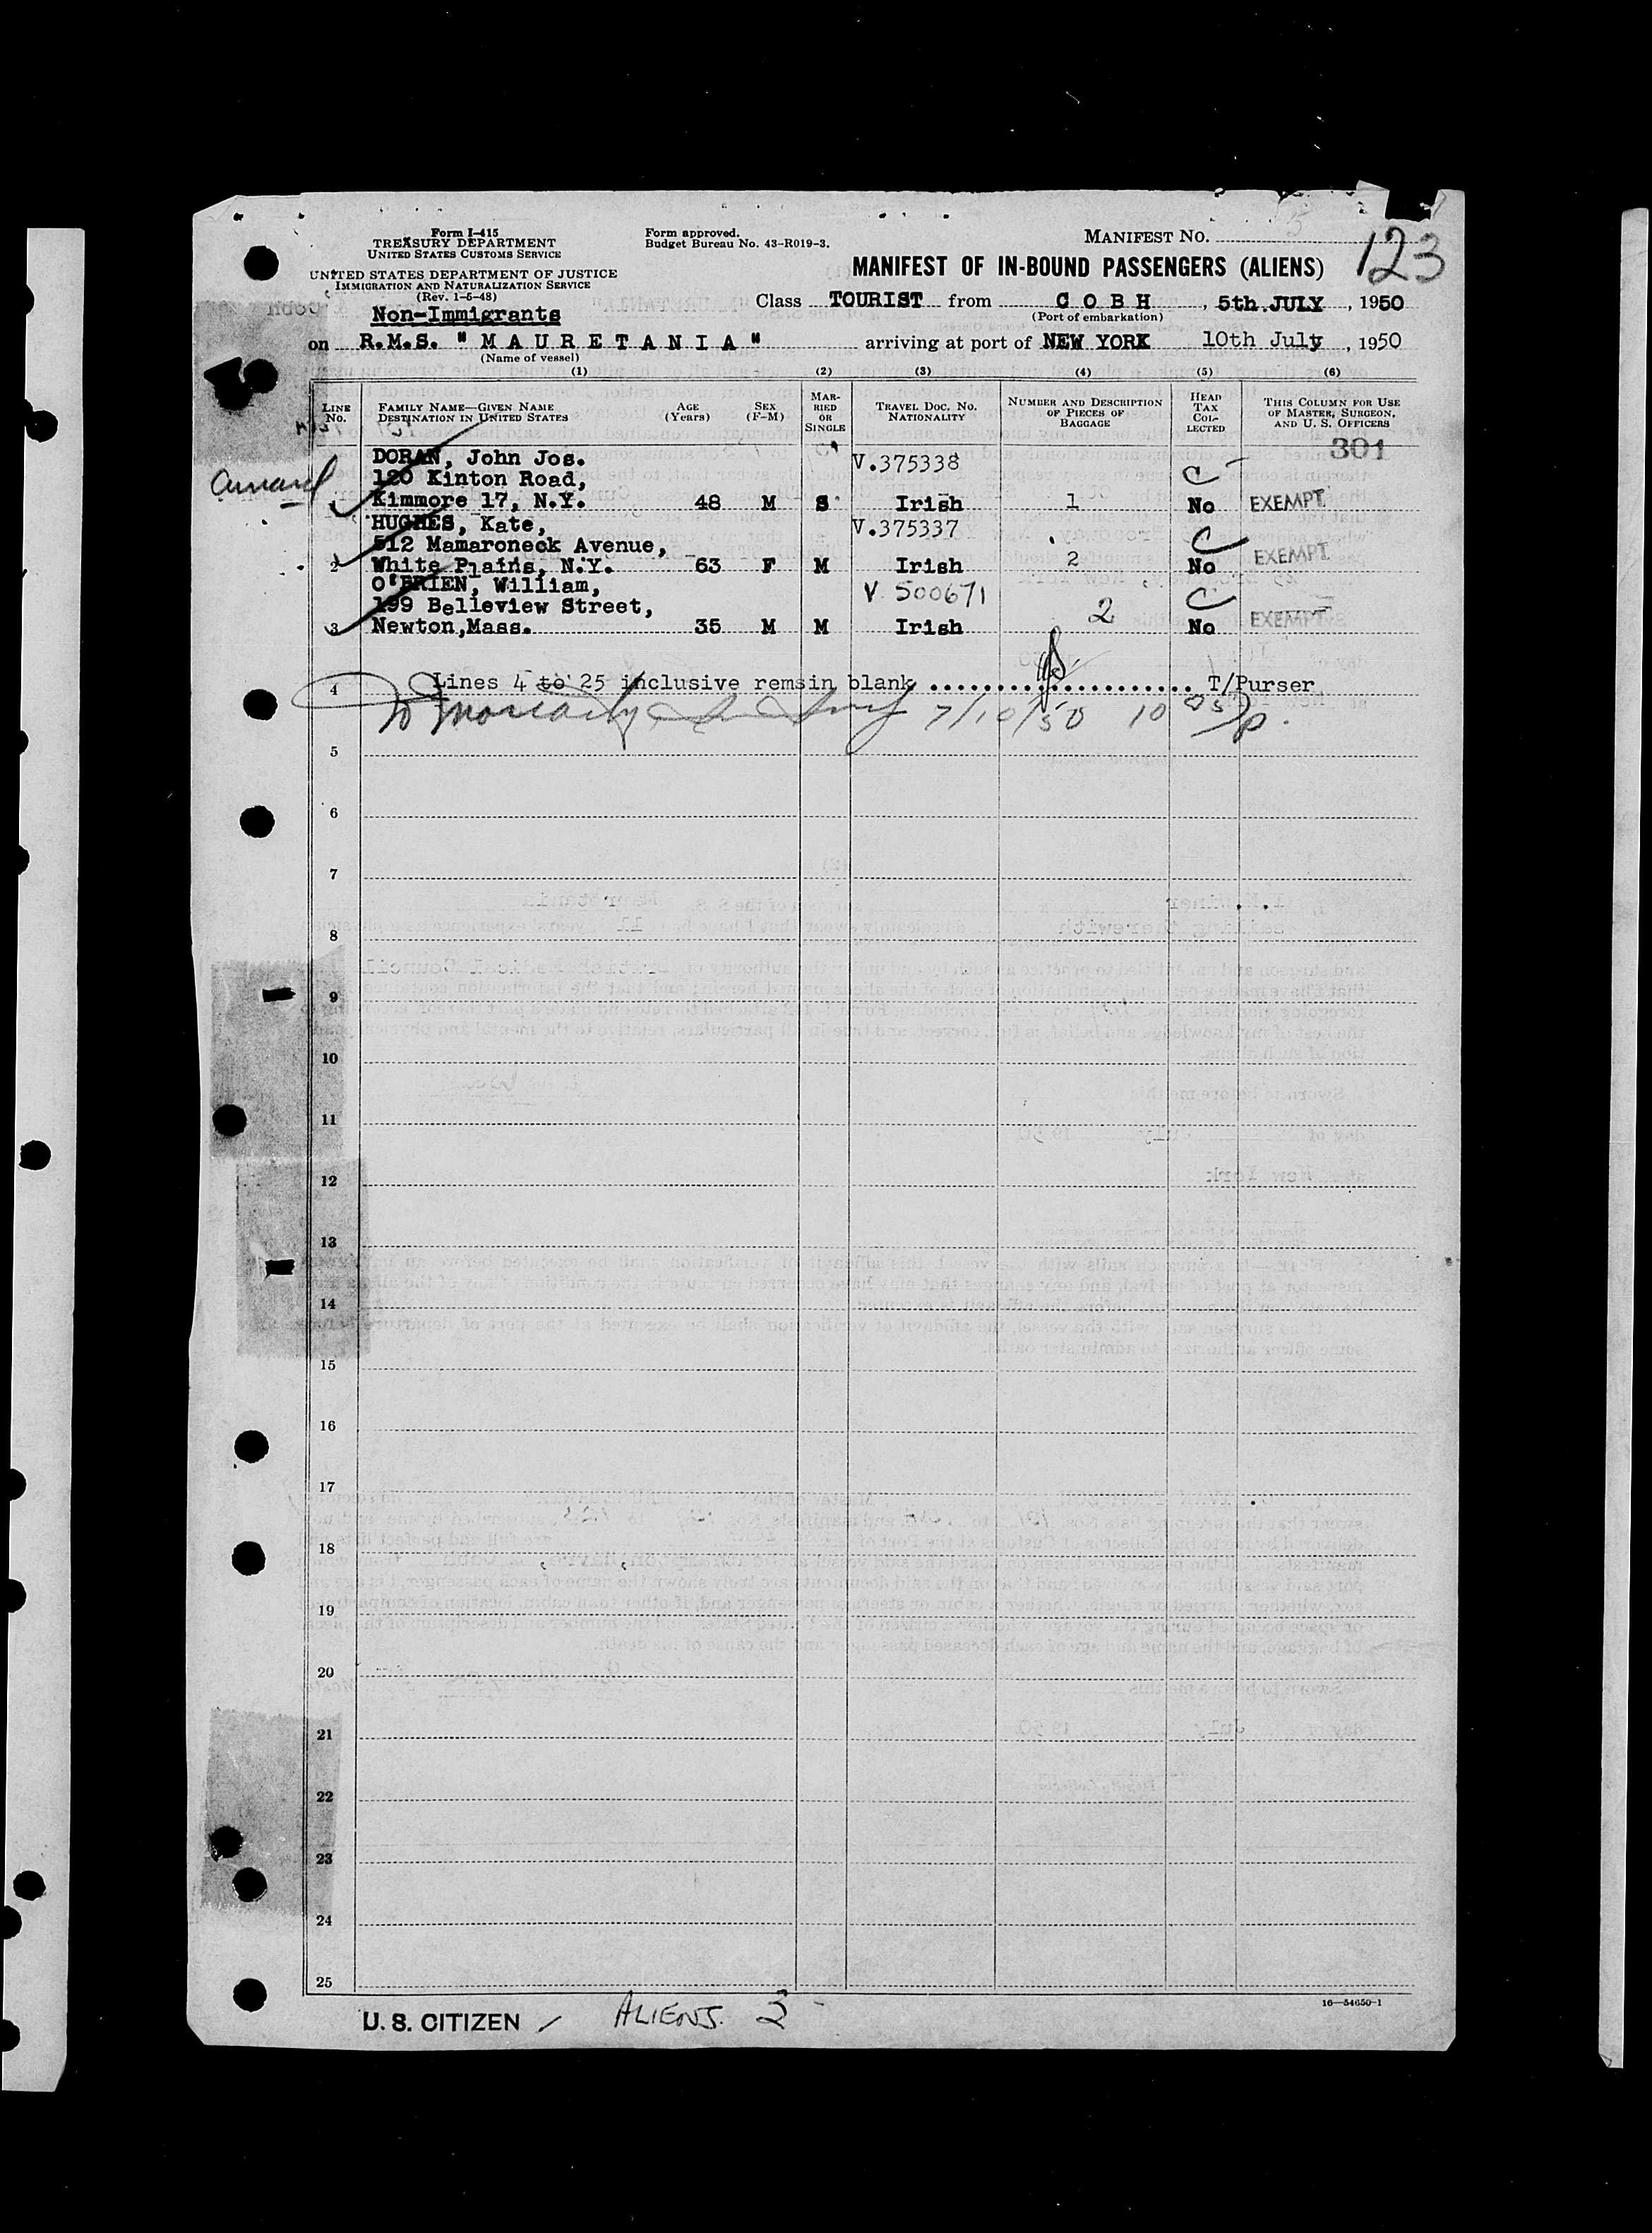 Form I-415
TREASURY DEPARTMENT
UNITED STATES CUSTOMS SERVICE
UNITED STATES DEPARTMENT OF JUSTICE
IMMIGRATION AND NATURALIZATION SERVICE
(Rev. 1-5-48)
Non-Immigrants
Form approved.
Budget Bureau No. 43-R019-3.
MANIFEST NO.
123
MANIFEST OF IN-BOUND PASSENGERS (ALIENS)
Class TOURIST from COBH, 5th JULY, 1950
(Port of embarkation)
on R.M.S. "MAURETANIA" arriving at port of NEW YORK 10th July, 1950
(Name of vessel)
(1) (2) (3) (4) (5) (6)
LINE NO. FAMILY NAME—GIVEN NAME DESTINATION IN UNITED STATES AGE (Years) SEX (F-M) MARRIED OR SINGLE TRAVEL DOC. NO. NATIONALITY NUMBER AND DESCRIPTION OF PIECES OF BAGGAGE HEAD TAX COLLECTED THIS COLUMN FOR USE OF MASTER, SURGEON, AND U. S. OFFICERS
301
DORAN, John Jos. V.375338
120 Kinton Road, C
1 Kimmore 17, N.Y. 48 M S Irish 1 No EXEMPT
HUGHES, Kate, V.375337
512 Mamaroneck Avenue, C
2 White Plains, N.Y. 63 F M Irish 2 No EXEMPT
O'BRIEN, William, V 500671
199 Belleview Street, 2 C
3 Newton,Mass. 35 M M Irish No EXEMPT
4 Lines 4 to 25 inclusive remsin blank .................... T/Purser
7/10/50 10 05 p.
5
6
7
8
9
10
11
12
13
14
15
16
17
18
19
20
21
22
23
24
25
16—54650-1
U. S. CITIZEN / ALIENS. 3